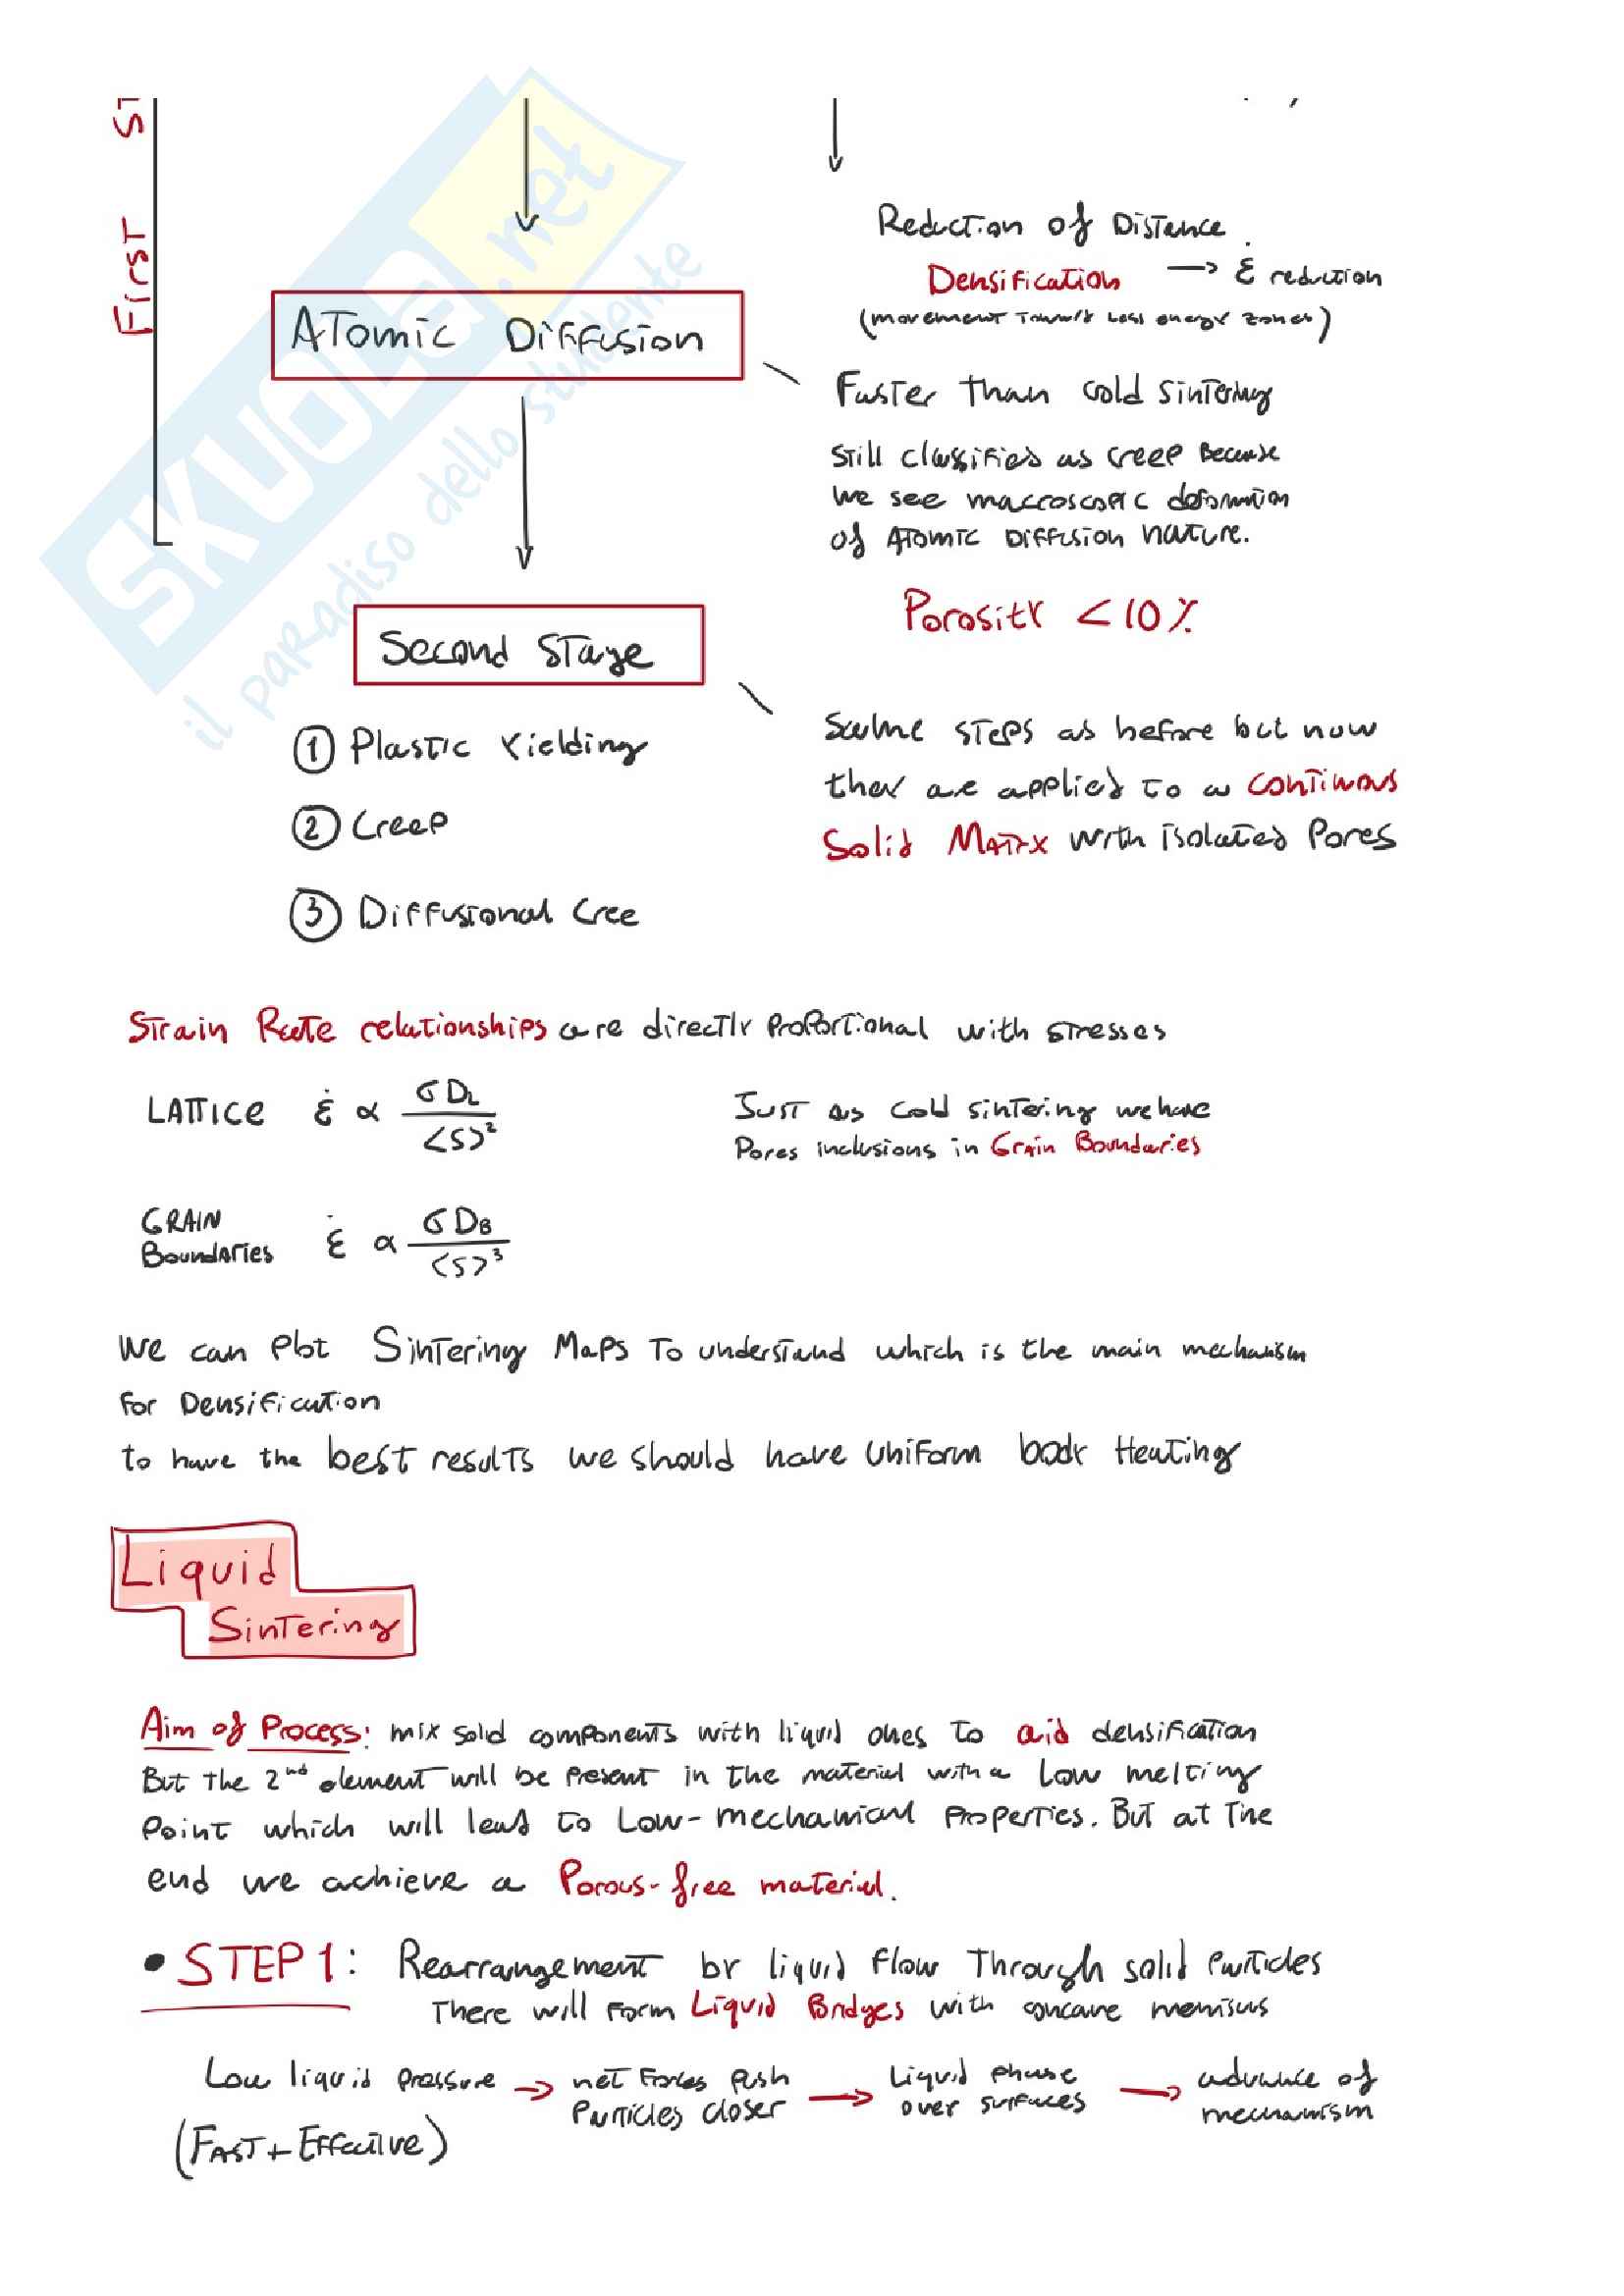 First St
Reduction of Distance
Densification → ε̇ reduction
(movement towards less energy zones)
Atomic Diffusion
Faster than cold sintering
Still classified as creep because
we see macroscopic deformation
of Atomic Diffusion nature.
Porosity < 10 %
Second Stage
Same steps as before but now
they are applied to a continuous
Solid Matrix with isolated Pores
① Plastic Yielding
② Creep
③ Diffusional Cree
Strain Rate relationships are directly proportional with stresses
LATTICE ε̇ ∝ σ D_L / <S>²
Just as cold sintering we have
Pores inclusions in Grain Boundaries
GRAIN
Boundaries ε̇ ∝ σ D_B / <S>³
We can plot Sintering Maps to understand which is the main mechanism
for Densification
to have the best results we should have uniform body Heating
Liquid
Sintering
Aim of Process: mix solid components with liquid ones to aid densification
But the 2nd element will be present in the material with a low melting
point which will lead to Low-mechanical properties. But at the
end we achieve a Porous-free material.
• STEP 1: Rearrangement by liquid flow through solid particles
There will form Liquid Bridges with concave meniscus
Low liquid pressure → net forces push → Liquid phase → advance of
particles closer over surfaces mechanism
(FAST + Effective)
SKUOLa.net
il paradiso dello studente